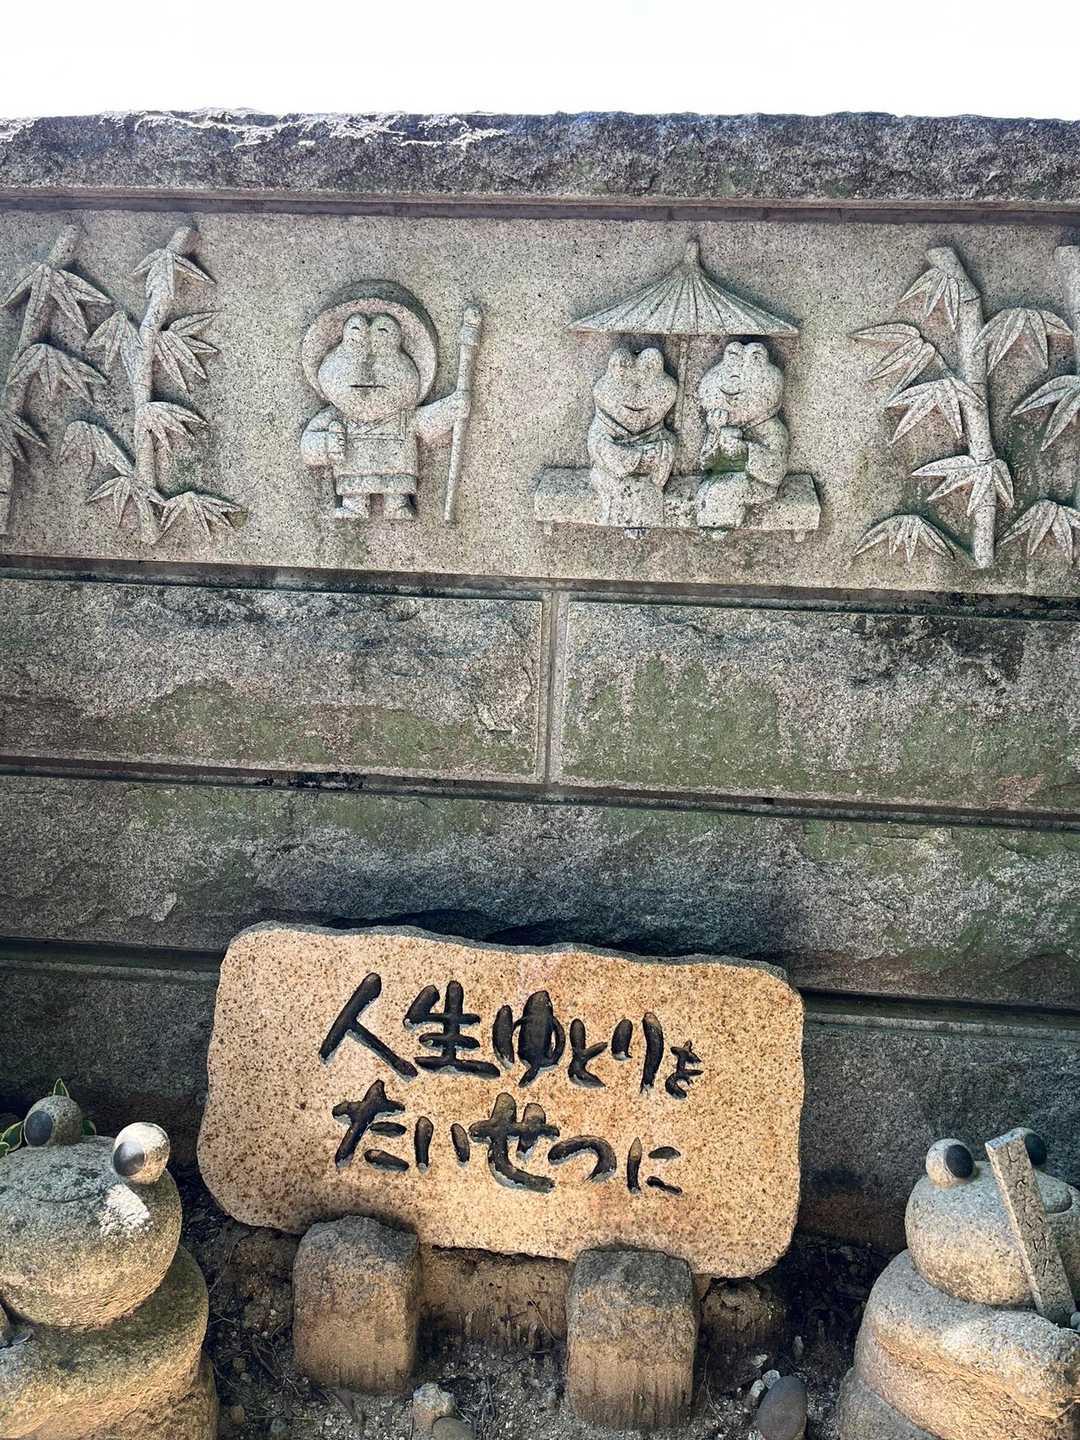 人生ゆとりを
たいせつに